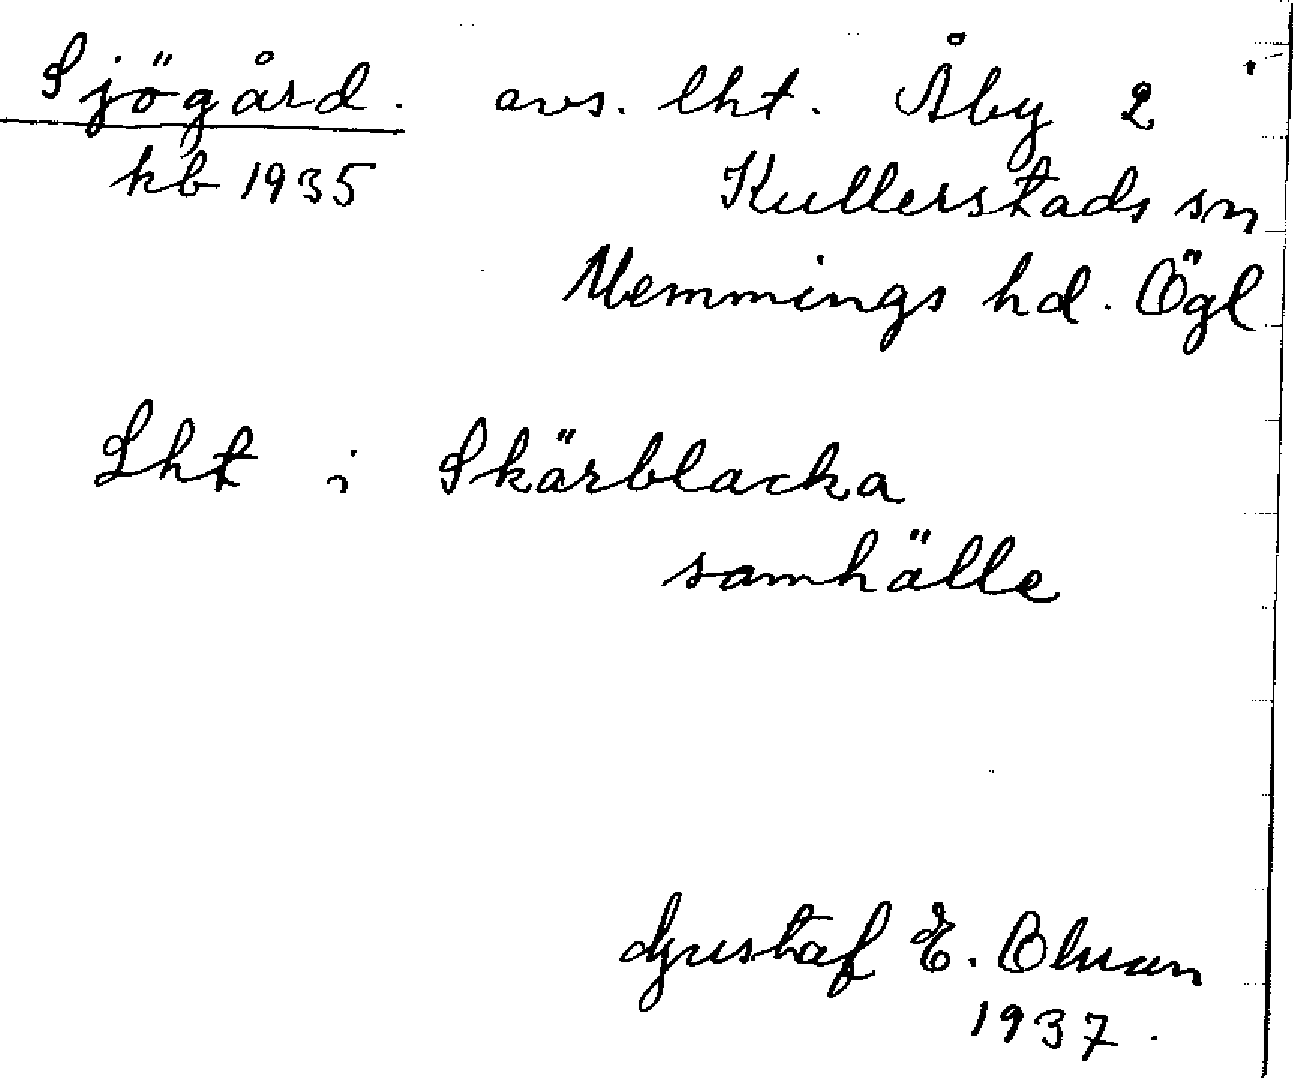 Sjögård. avs. lht. Åby 2
kb 1935 Kullerstads sn
Memmings hd. Ögl
Lht i Skärblacka
samhälle
Gustaf E. Ohman
1937.